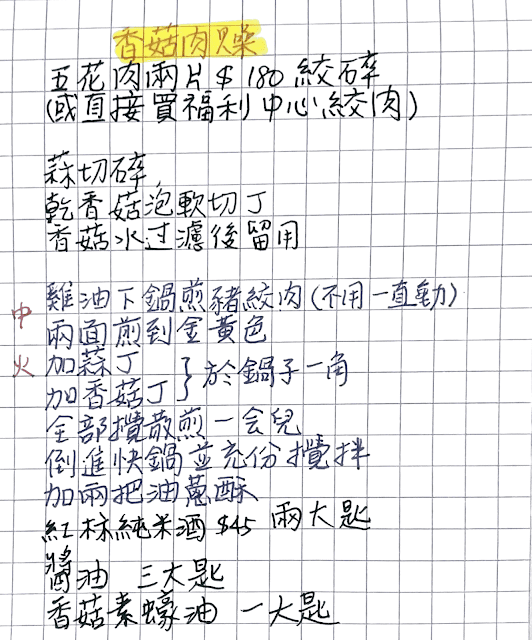 香菇肉燥
五花肉兩片$180絞碎
(或直接買福利中心絞肉)
蒜切碎,
乾香菇泡軟切丁
香菇水过濾後留用
中火
雞油下鍋煎豬絞肉(不用一直動)
兩面煎到金黃色
加蒜丁
加香菇丁 } 於鍋子一角
全部攪散煎一会兒
倒進快鍋並充份攪拌
加兩把油蔥酥
紅標純米酒$45 兩大匙
醬油 三大匙
香菇素蠔油 一大匙